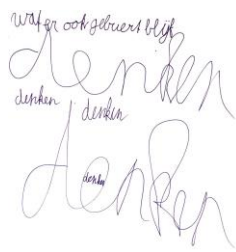 wat er ook gebeurt blijf
denken
denken denken
denken
denken